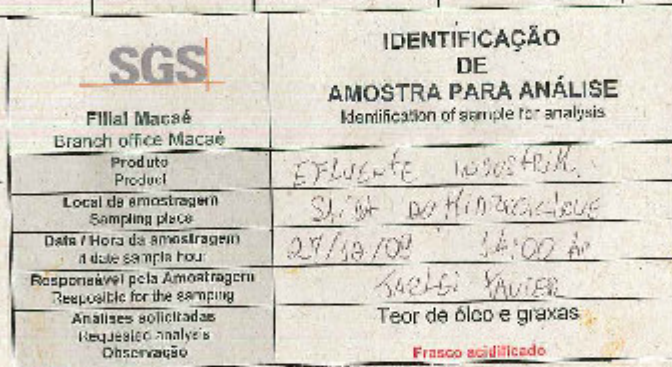 SGS
Filial Macaé
Branch office Macaé
IDENTIFICAÇÃO
DE
AMOSTRA PARA ANÁLISE
Identification of sample for analysis
Produto
Product
EFLUENTE INDUSTRIAL
Local de amostragem
Sampling place
DO HIDROCICLONE
Data / Hora da amostragem
date sample hour
14:00
Responsável pela Amostragem
Resposible for the samping
XAVIER
Análises solicitadas
Requested analysis
Observação
Teor de óleo e graxas
Frasco acidificado